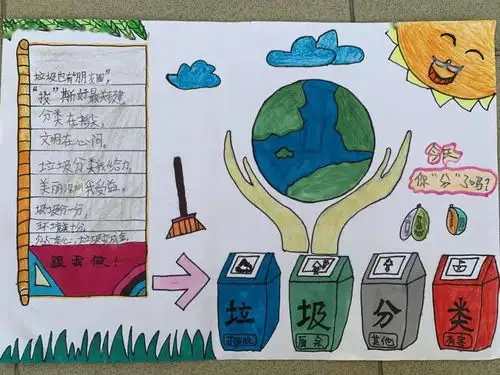 垃圾也有“朋友圈”，
“投”斯好最关键
分类在指尖，
文明在心间。
垃圾分类我给力，
美丽深圳我受益。
垃圾分一分，
环境美十分
分一分，垃圾变成金
跟我做！
今天
你“分”了吗？
垃 圾 分 类
可回收 厨余 其他 有害